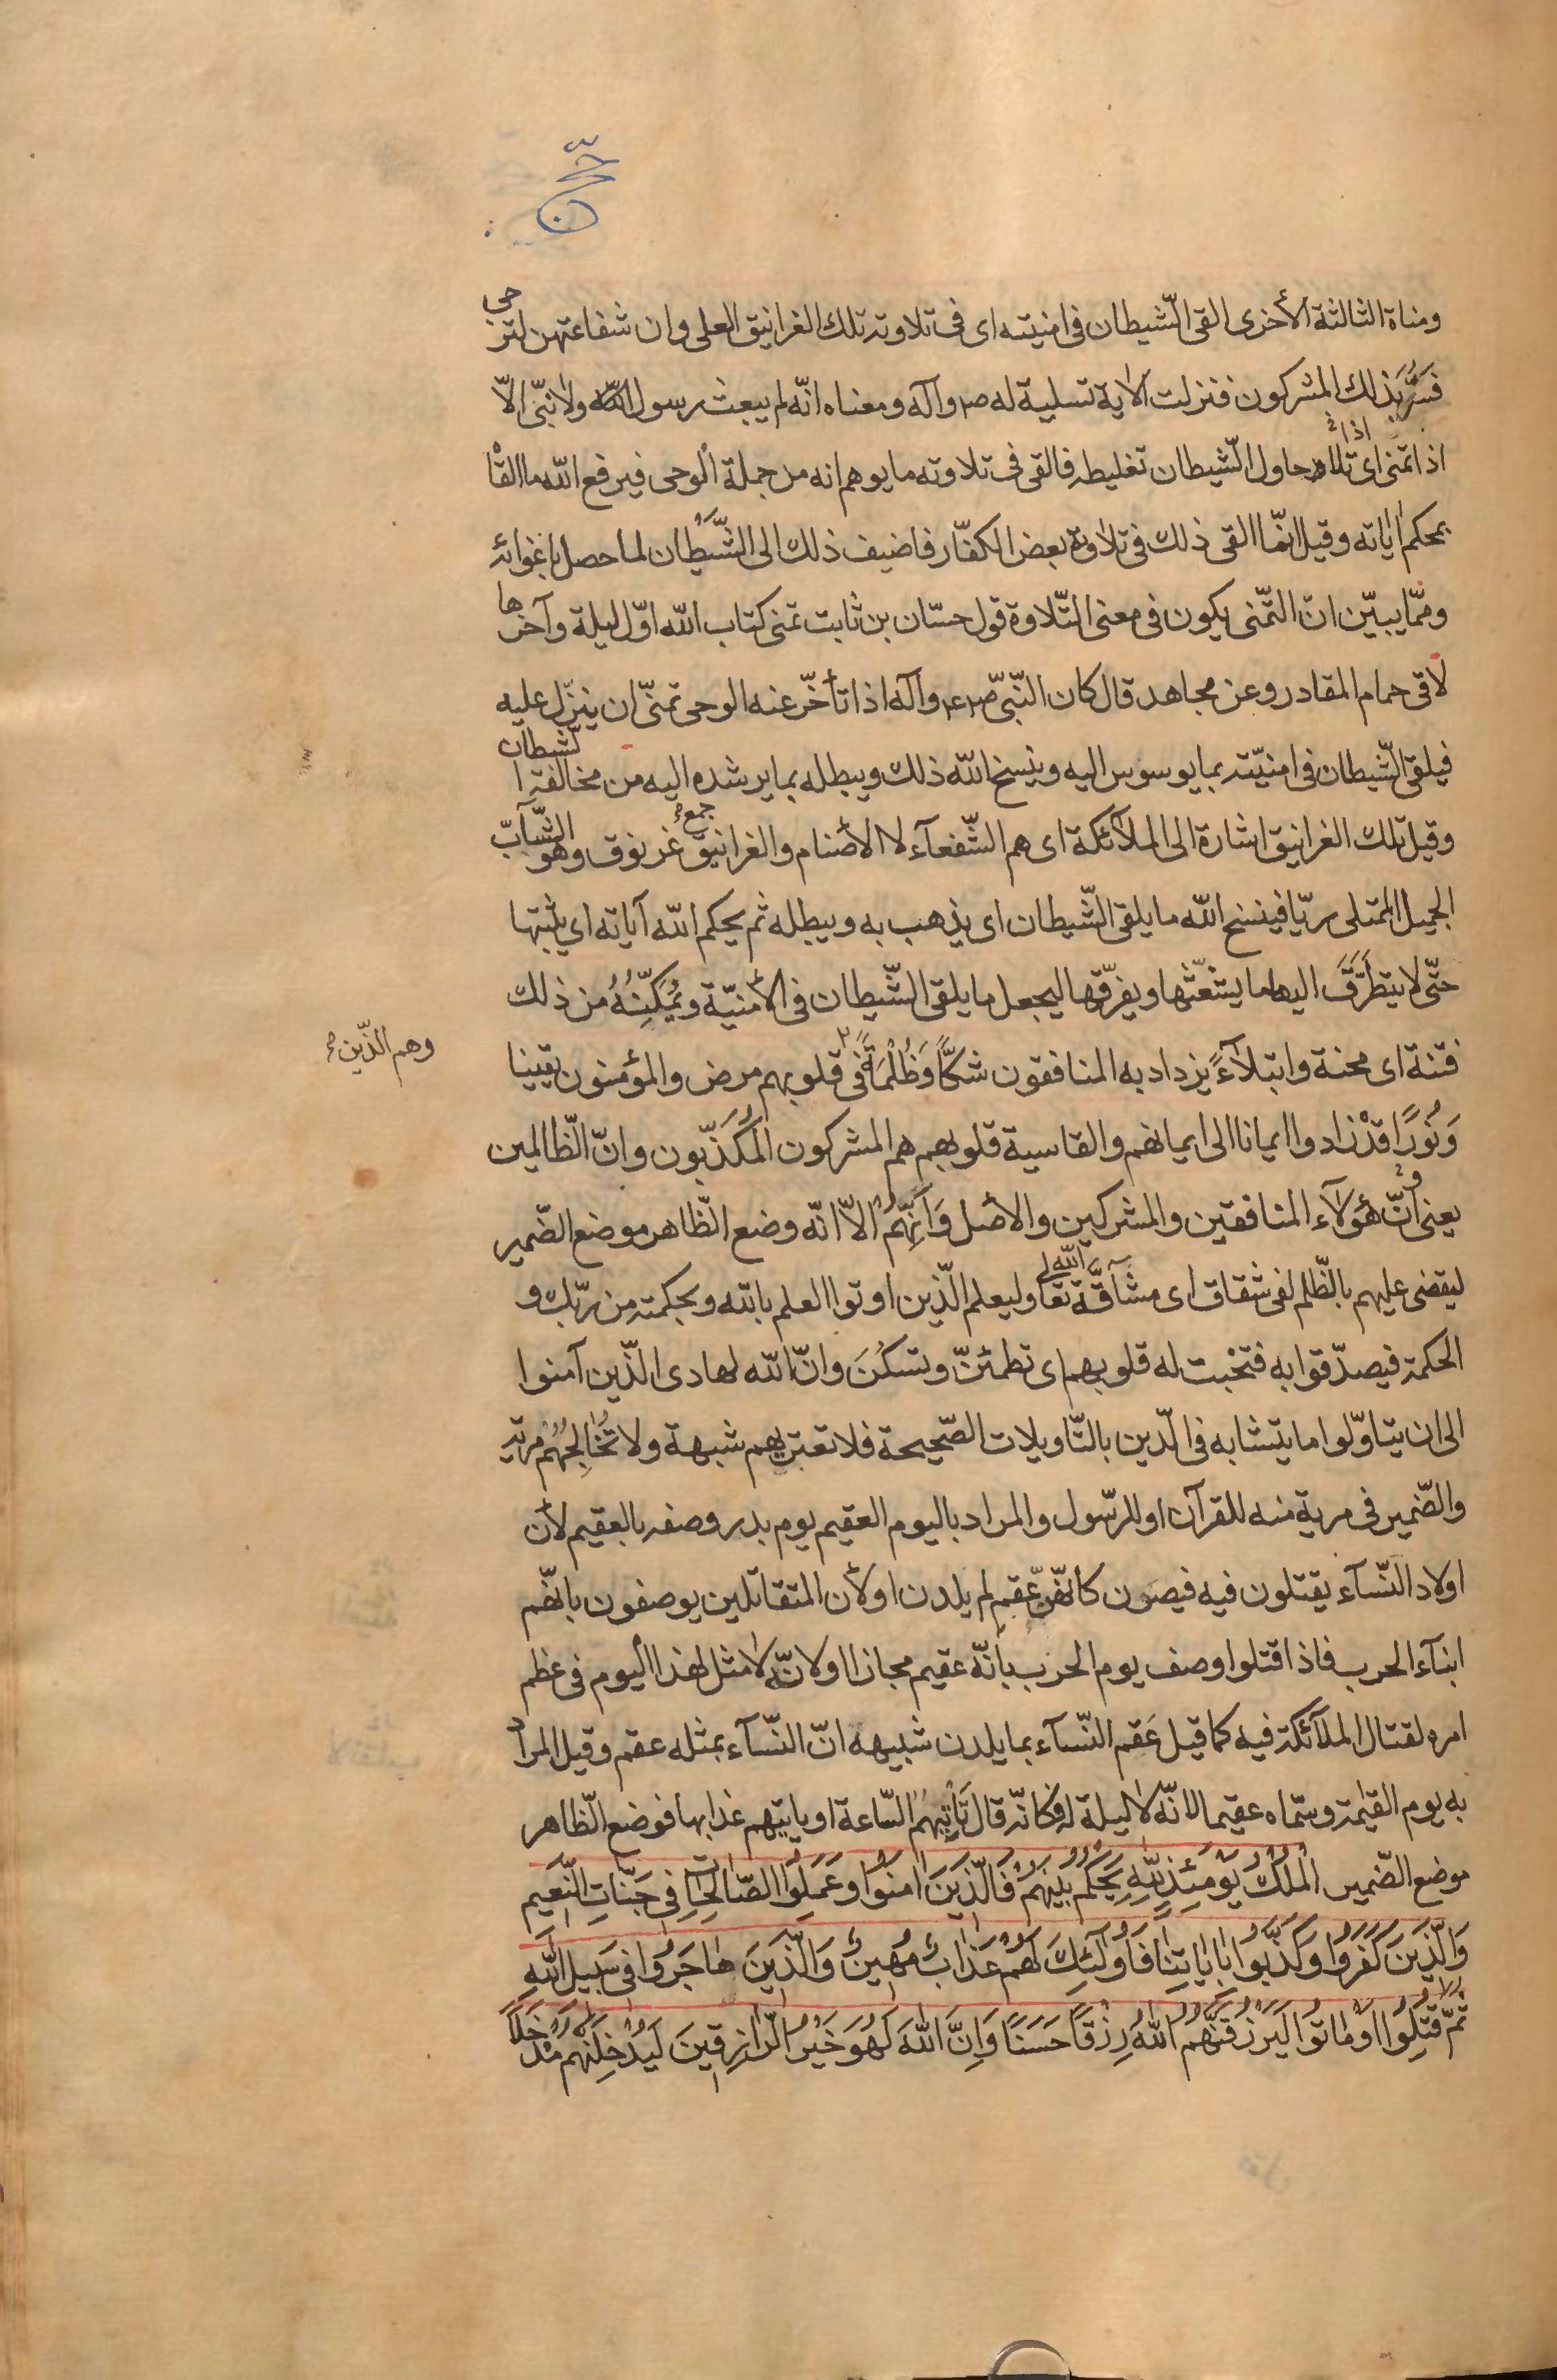 حج
ومناة الثالثة الأخرى القى الشّيطان فى امنيته اى فى تلاوته تلك الغرانيق العلى وان شفاعتهن لترجى
فَسُرَّ بذلك المشركون فنزلت الآية تسلية له ص وآله ومعناه انّه لم يبعث رسول الله ولا نبّى الّا
اذا تمنى اى تلا اذا حاول الشّيطان تغليطه فالقى فى تلاوته ما يوهم انه من جملة الوحى فيرفع الله ما القا
بمحكم اياته وقيل انمّا القى ذلك فى تلاوته بعض الكفّار فاضيف ذلك الى الشَّيْطان لما حصل باغوائه
وممّا يبيّن انّ التمّنى يكون فى معنى التّلاوة قول حسّان بن ثابت تمنى كتاب الله اوّل ليلة وآخرها
لاقى حمام المقادر وعن مجاهد قال كان النّبىّ ص ع وآله اذا تأخّر عنه الوحى تمنىّ ان ينزّل عليه
فيلقى الشّيطان فى امنيّته بما يوسوس اليه وينسخ الله ذلك ويبطله بما يرشده اليه من مخالفة الشّيطان
وقيل تلك الغرانيق اشارة الى الملآئكة اى هم الشّفعآء لا الأصنام والغرانيق جمع غرنوق وهو الشّآبّ
الجميل الممتلى ريّا فينسخ الله ما يلقى الشّيطان اى يذهب به ويبطله ثم يحكم الله آياته اى يثبتها
حتّى لا يتطرَّقَ اليها ما يشعّثها ويفرّقها ليجعل ما يلقى الشّيطان فى الأمنيّة ويُمَكِّنُهُ من ذلك
فتنة اى محنة وابتلآءً يزداد به المنافقون شكًّا وَظُلْمَةً فى قلوبهم مرض والمؤمنون يقينا
وهم الذّين
وَنُورًا قدْ زادوا ايمانا الى ايمانهم والقاسية قلوبهم هم المشركون المُكَذّبون وانّ الظّالمين
يعنى وانّ هؤلآء المنافقين والمشركين والأصل وَاَنِّهمْ الاّ انّه وضع الظّاهر موضع الضّمير
ليقضى عليهم بالظّلم لفى شقاق اى مشآقَّة الله تعالى وليعلم الّذين اوتوا العلم بالله وبحكمته من ربّك و
الحكمة فيصدّقوا به فتخْبت له قلوبهم اى تطمئنّ وتسكُنَ وانّ الله لهادى الذّين آمنوا
الى ان يتاوّلوا ما يتشابه فى الّدين بالتّاويلات الصّحيحة فلا تعتريهم شبهة ولا تُخٰالِجُهُمْ مرية
والضّمير فى مرية منه للقرآن او للرّسول والمراد باليوم العقيم يوم بدر وصفه بالعقيم لأن
اولاد النّسآء يقتلون فيه فيصرن كانّهنّ عقم لم يلدن او لأن المتقاتلين يوصفون بانّهم
ابنآء الحرب فاذا قتلوا وصف يوم الحرب بانّه عقيم مجازا او لانّه لا مثل لهذا اليوم فى عظم
امره لقتال الملآئكة فيه كما قيل عَقم النّسآء بما يلدن شبيهه انّ النّسآء بمثله عقم وقيل المراد
به يوم القيٰمة وسمّاه عقيما لانّه لا ليلة له وكانّه قال تَأْتِيَهُمُ السّاعة او ياتيهم عذابها فوضع الظّاهر
موضع الضّمير اَلْمُلْكُ يَوْمَئِذٍ لِلّٰهِ يَحْكُمُ بَيْنَهُمْ فَالَّذينَ اٰمَنُوا وَعَمِلُوا الصّٰالِحٰاتِ فى جَنّٰاتِ النَّعيمِ
وَالَّذينَ كَفَرُوا وَكَذَّبُوا بِاٰيٰاتِنٰا فَاُولٰئِكَ لَهُمْ عَذٰابٌ مُهينٌ وَالَّذينَ هٰاجَرُوا فى سَبيلِ اللّٰهِ
ثُمَّ قُتِلُوا اَوْ مٰاتُوا لَيَرْزُقَنَّهُمُ اللّٰهُ رِزْقًا حَسَنًا وَاِنَّ اللّٰهَ لَهُوَ خَيْرُ الرّٰازِقينَ لَيُدْخِلَنَّهُمْ مُدْخَلًا